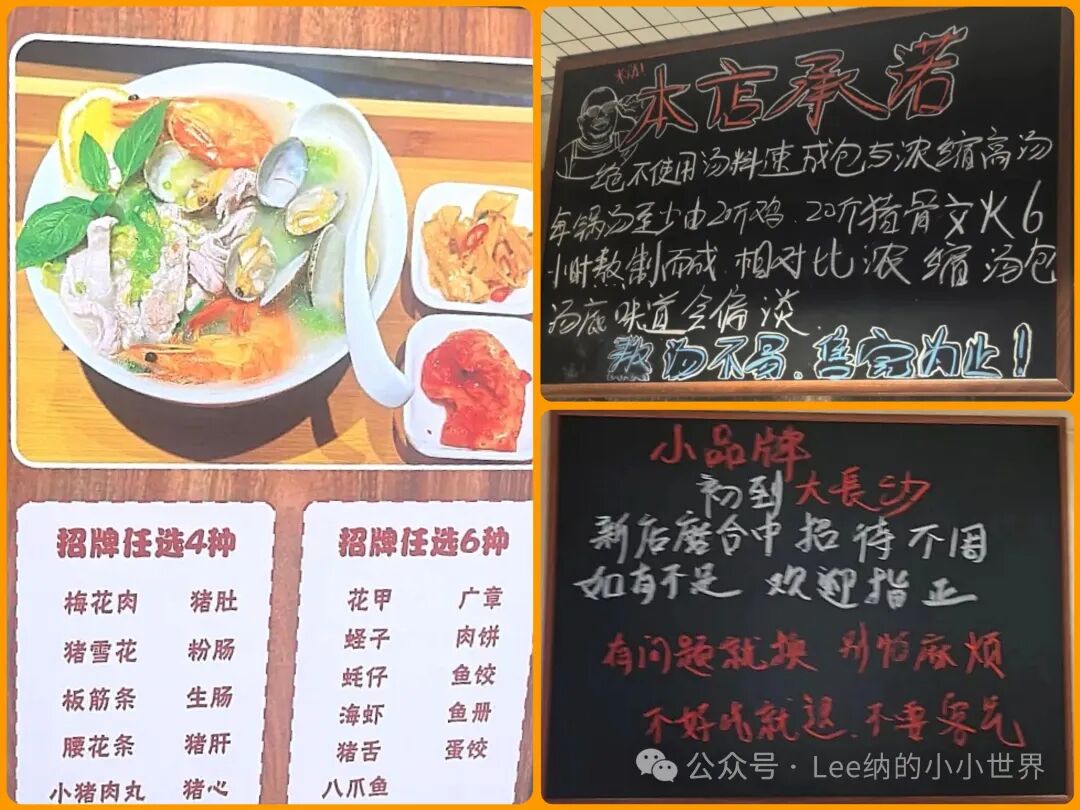 招牌任选4种
梅花肉 猪肚
猪雪花 粉肠
板筋条 生肠
腰花条 猪肝
小猪肉丸 猪心
招牌任选6种
花甲 广章
蛏子 肉饼
蚝仔 鱼饺
海虾 鱼册
猪舌 蛋饺
八爪鱼
本店承诺
绝不使用汤料速成包与浓缩高汤
每锅汤至少由20斤鸡、20斤猪骨文火6
小时熬制而成,相对比浓缩汤包
汤底味道会偏淡.
熬汤不易.售完为止!
小品牌
初到大長沙
新店磨合中招待不周
如有不足 欢迎指正
有问题就换 别怕麻烦
不好吃就退.不要客气
公众号·Lee纳的小小世界